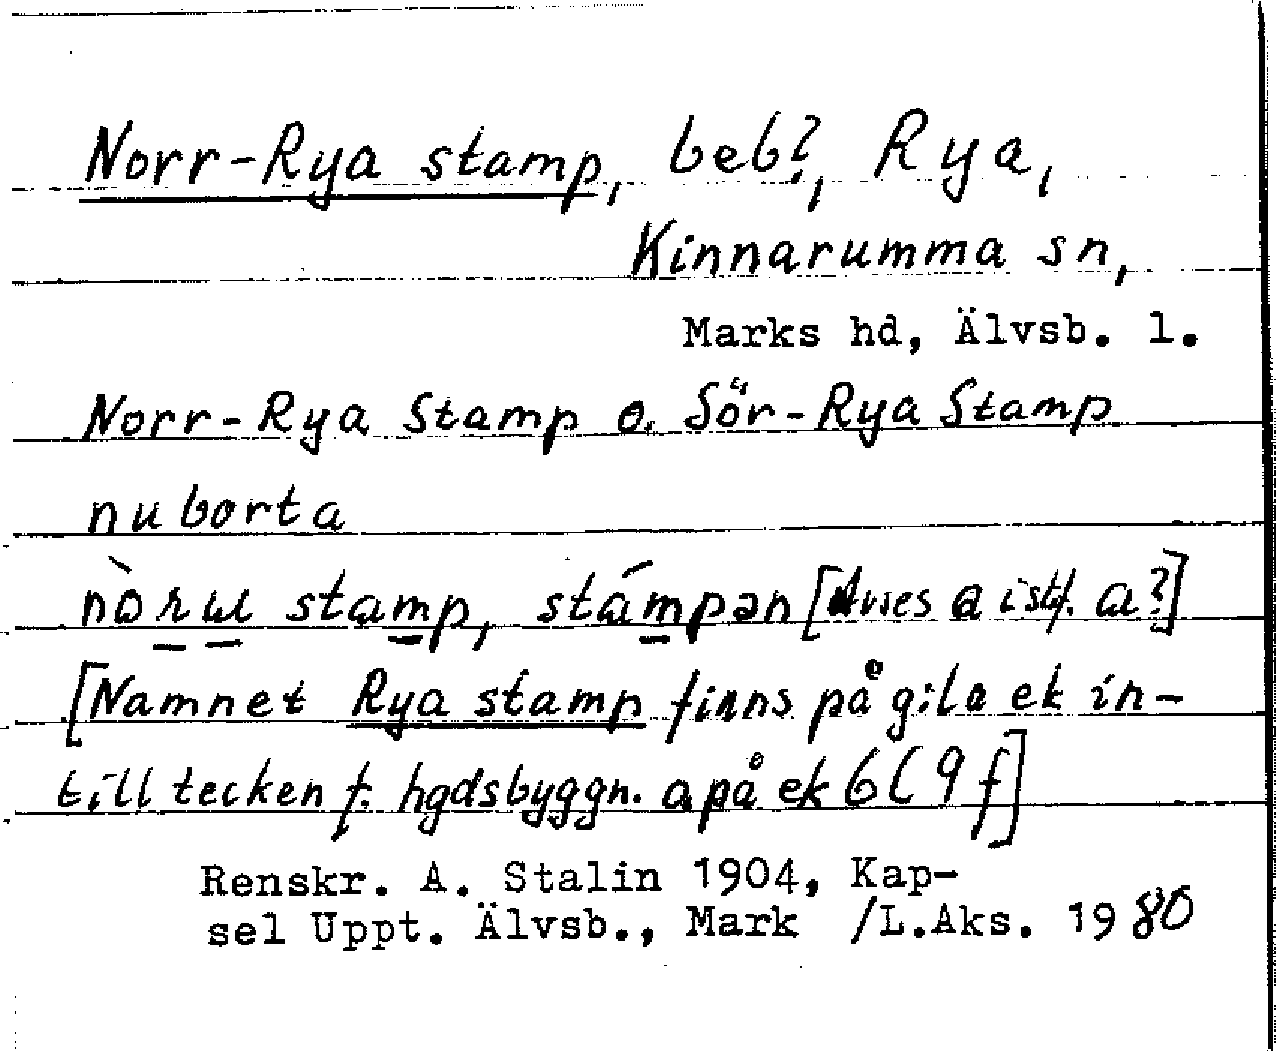 Norr-Rya stamp, beb?, Rya,
Kinnarumma sn,
Marks hd, Älvsb. l.
Norr-Rya Stamp o. Sör-Rya Stamp
nu borta
stamp, stámpən [Avses a ist f. a?]
[Namnet Rya stamp finns på gila ek in-
till tecken f. hgdsbyggn. a på ek 6C 9 f]
Renskr. A. Stalin 1904, Kap-
sel Uppt. Älvsb., Mark /L.Aks. 1980